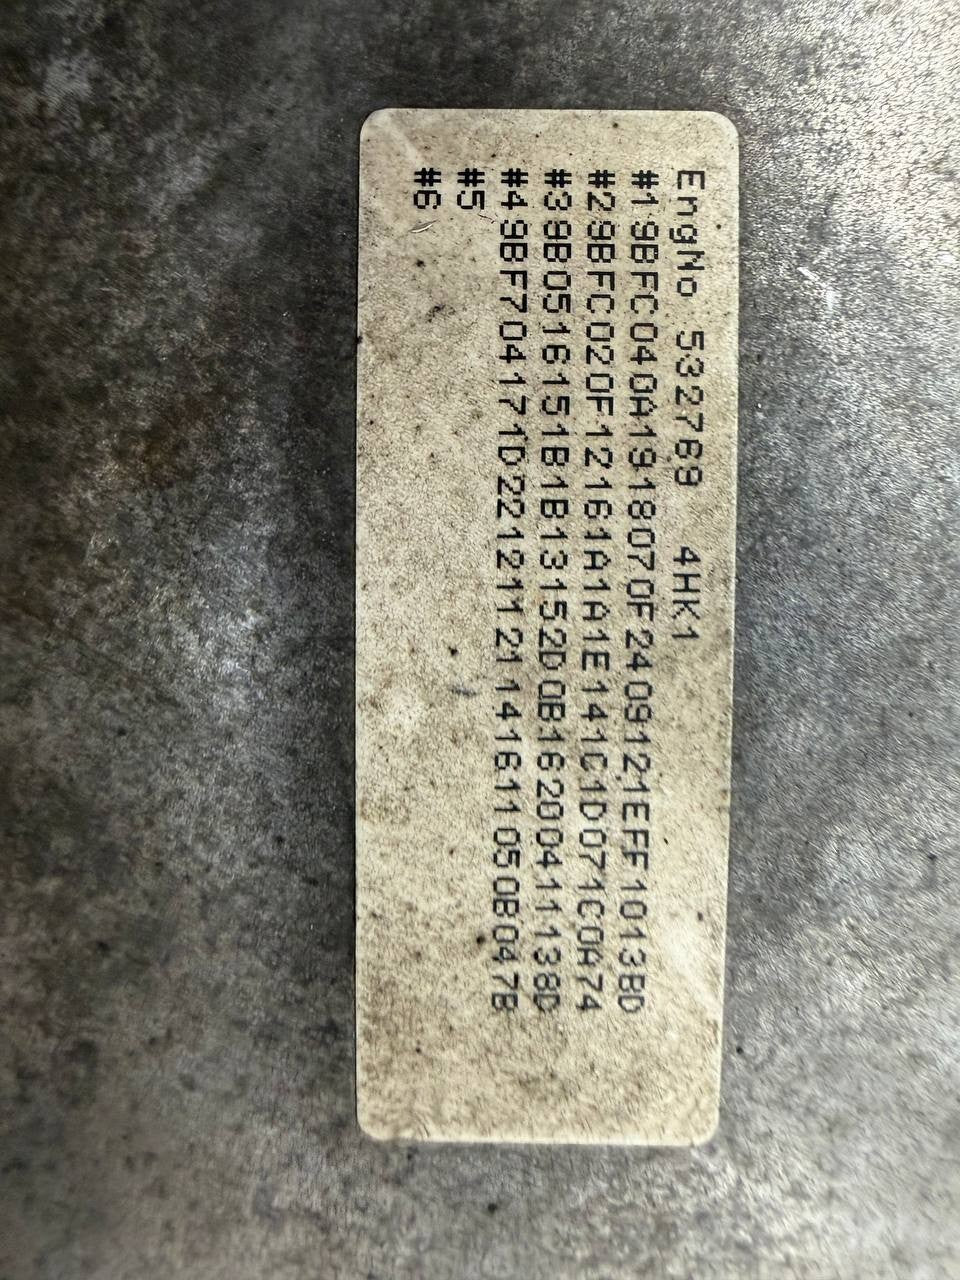 EngNo 532789 4HK1
#19BFC040A1918070F2409121EFF1013BD
#29BFC020F12161A1A1E141C1D071C0A74
#39B0516151B1B13152D0B16200411138D
#49BF704171D22121121141611050B047B
#5
#6